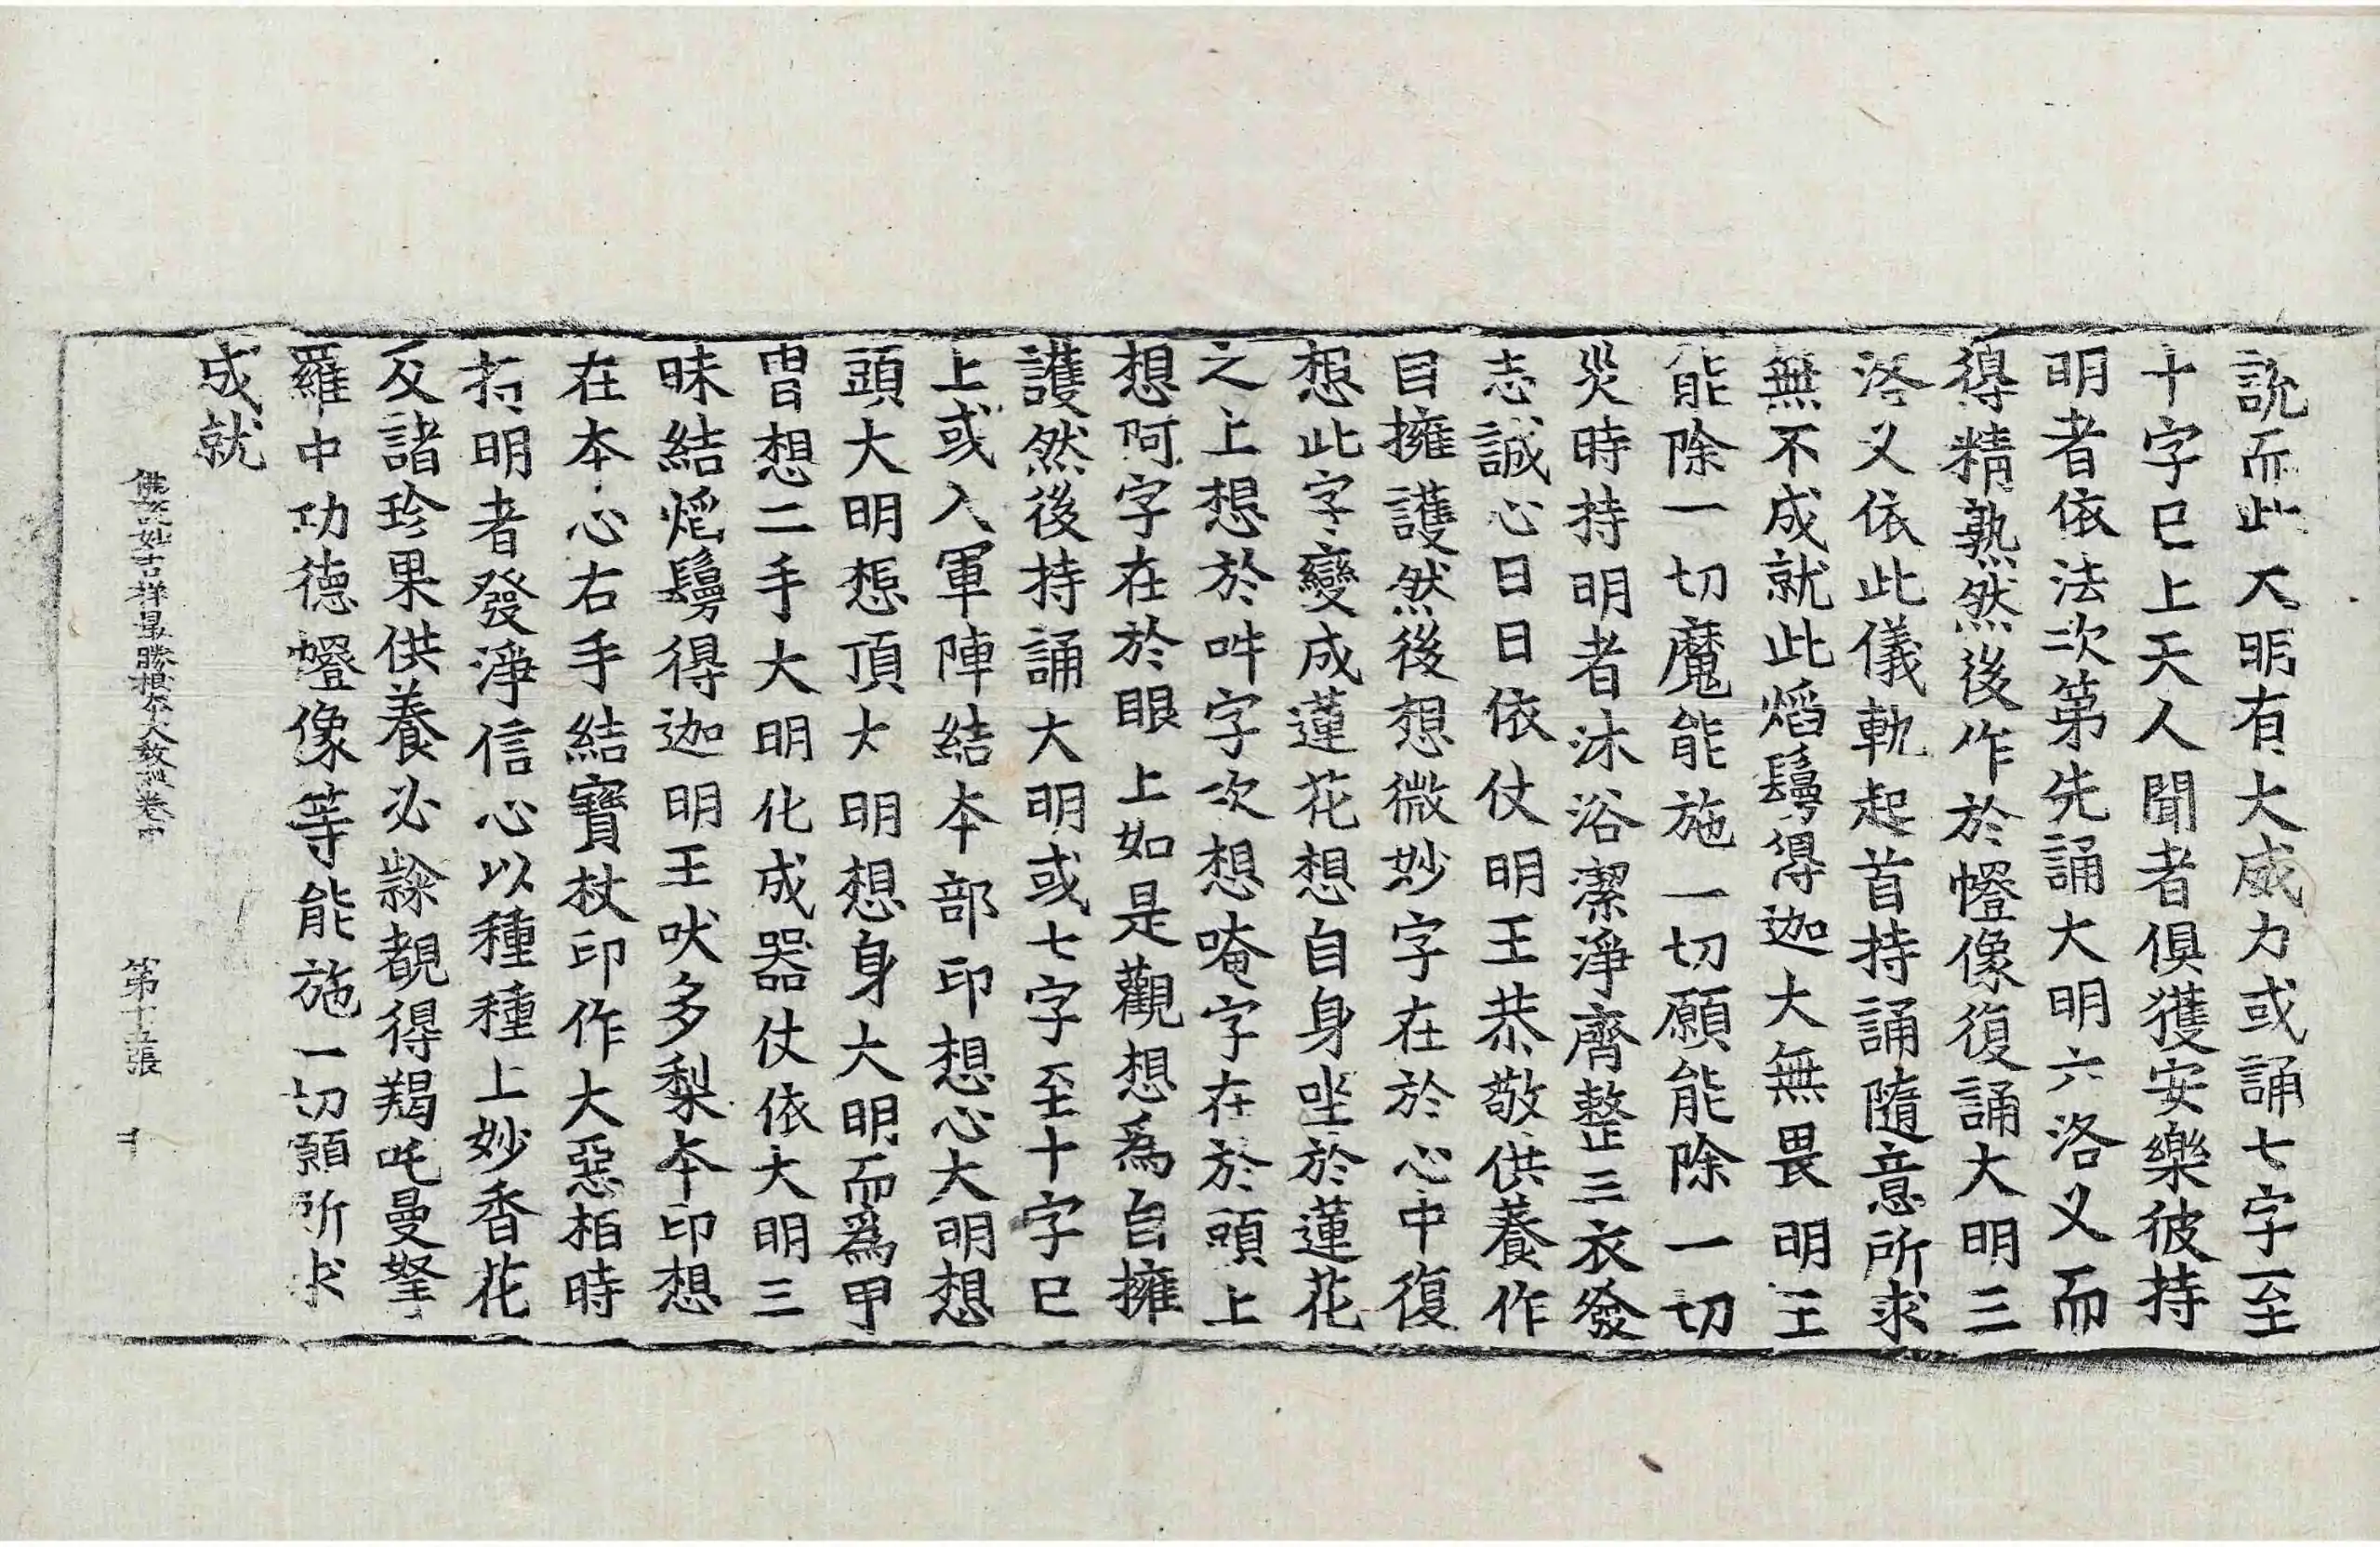 説而此大明有大威力或誦七字至
十字已上天人聞者俱獲安樂彼持
明者依法次第先誦大明六洛叉而
得精熟然後作於㡧像復誦大明三
洛叉依此儀軌起首持誦隨意所求
無不成就此熖鬘得迦大無畏明王
能除一切魔能施一切願能除一切
災時持明者沐浴潔淨齊整三衣發
志誠心日日依仗明王恭敬供養作
自擁護然後想微妙字在於心中復
想此字變成蓮花想自身坐於蓮花
之上想於吽字次想唵字在於頭上
想阿字在於眼上如是觀想爲自擁
護然後持誦大明或七字至十字已
上或入軍陣結本部印想心大明想
頭大明想頂大明想身大明而爲甲
冑想二手大明化成器仗依大明三
昧結熖鬘得迦明王吠多梨本印想
在本心右手結寶杖印作大惡相時
持明者發淨信心以種種上妙香花
及諸珍果供養必𨽻覩得羯吒曼拏
羅中功德㡧像等能施一切願所求
成就
佛說妙吉祥最勝根本大教經卷中 第十五張